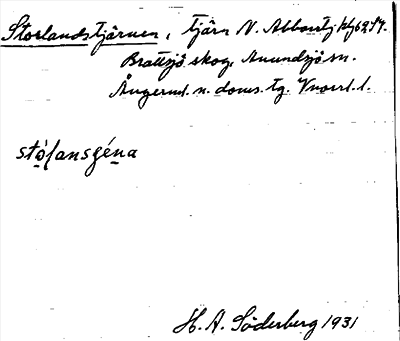 Storlandstjärnen, tjärn N. Abborrtj
Brattsjö skog, Anundsjö sn.
Ångerml. n. doms. tg. Vnorrl. l.
sto̱lansgéṉa
H. A. Söderberg 1931